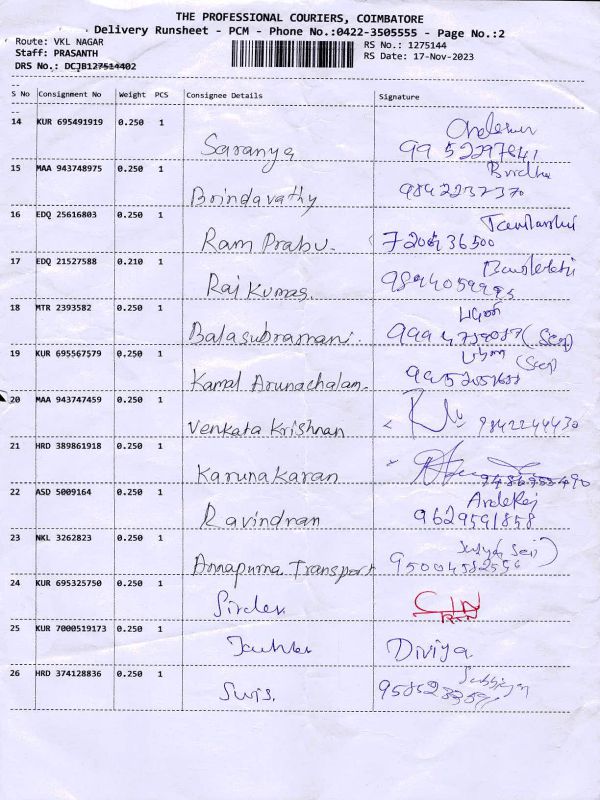 THE PROFESSIONAL COURIERS, COIMBATORE
Delivery Runsheet - PCM - Phone No.:0422-3505555 - Page No.:2
Route: VKL NAGAR
RS No.: 1275144
Staff: PRASANTH
RS Date: 17-Nov-2023
DRS No.: DCJB127514402
S No Consignment No Weight PCS Consignee Details Signature
14 KUR 695491919 0.250 1
Saranya
15 MAA 943748975 0.250 1
Brindavathy 9842232370
16 EDQ 25616803 0.250 1
Ram Prabu.
17 EDQ 21527588 0.210 1
Raj Kumar.
18 MTR 2393582 0.250 1
Balasubramani.
19 KUR 695567579 0.250 1
Kamal Arunachalam.
20 MAA 943747459 0.250 1
Venkata Krishnan 9842244430
21 HRD 389861918 0.250 1
Karunakaran
22 ASD 5009164 0.250 1
Ravindran 9629591858
23 NKL 3262823 0.250 1
Annapurna Transport
24 KUR 695325750 0.250 1
25 KUR 7000519173 0.250 1
Diviya
26 HRD 374128836 0.250 1